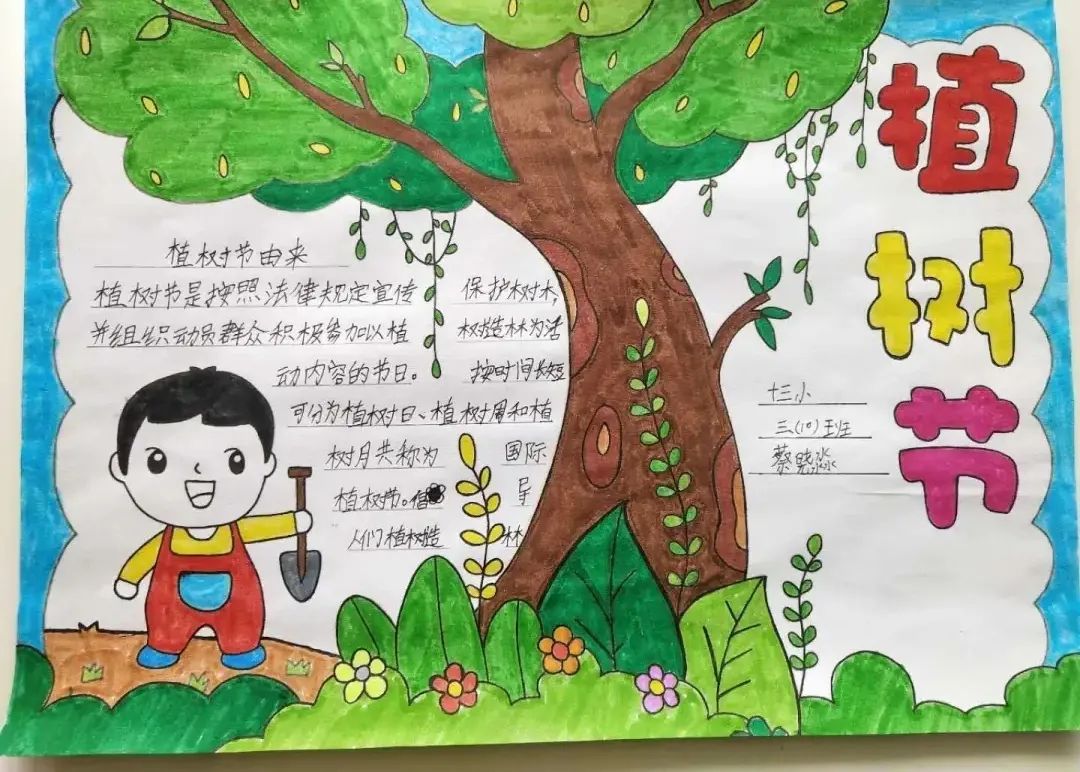 植树节
植树节由来
植树节是按照法律规定宣传保护树木,
并组织动员群众积极参加以植树造林为活
动内容的节日。按时间长短
可分为植树日、植树周和植
树月共称为国际
植树节。倡
人们植树造林
十三小
三(10)班
蔡晓淼